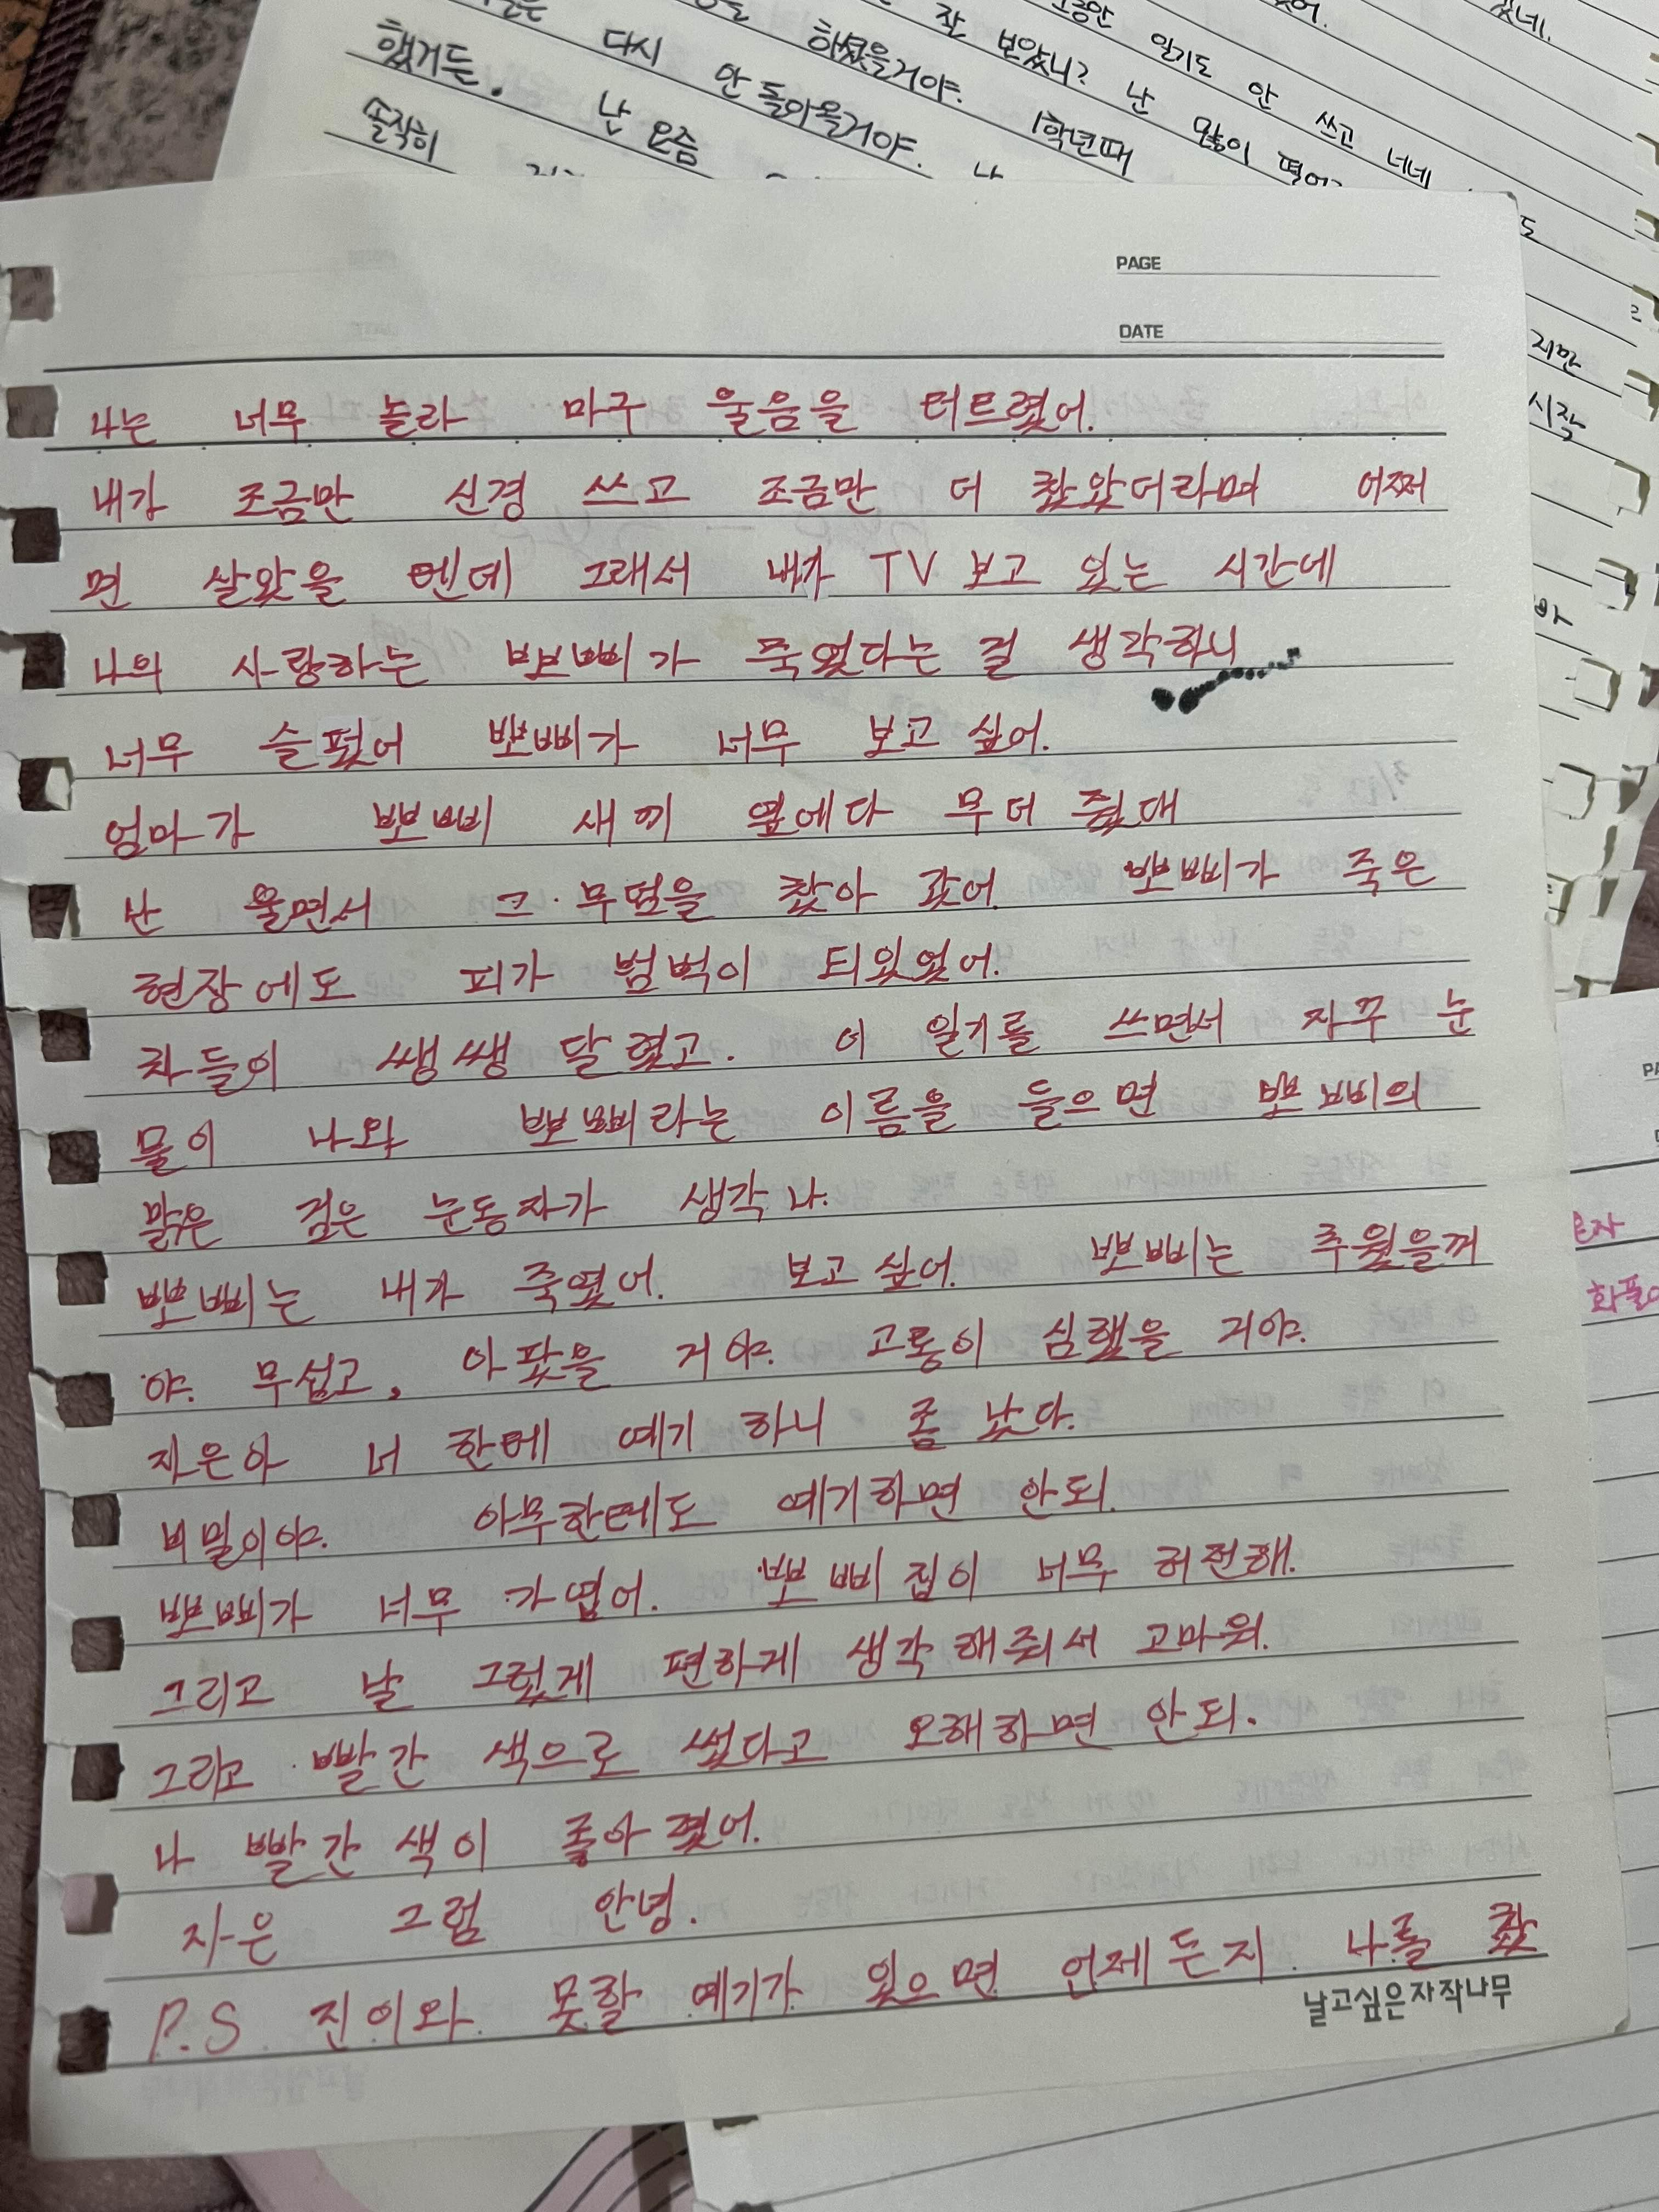 했거든. 난 요즘
솔직히
다시 안 돌아올거야. 나
하셨을거야. 1학년때
잘 보았니? 난 많이 떨어
일기도 안 쓰고 너네
PAGE
DATE
나는 너무 놀라 마구 울음을 터트렸어.
내가 조금만 신경 쓰고 조금만 더 찼았더라며 어쩌
면 살았을 텐데 그래서 내가 TV 보고 있는 시간데
나의 사랑하는 뽀삐가 죽었다는 걸 생각하니
너무 슬펐어 뽀삐가 너무 보고싶어.
엄마가 뽀삐 새끼 옆에다 무더 줬대
난 울면서 그 무덤을 찼아 갔어 뽀삐가 죽은
현장에도 피가 범벅이 되있었어.
차들이 쌩쌩 달렸고. 이 일기를 쓰면서 자꾸 눈
물이 나와 뽀삐라는 이름을 들으면 뽀삐의
맑은 검은 눈동자가 생각나.
뽀삐는 내가 죽였어. 보고싶어. 뽀삐는 추웠을꺼
야. 무섭고, 아팠을 거야. 고통이 심했을 거야.
자은아 너 한테 예기 하니 좀 낫다.
비밀이야. 아무한테도 예기하면 안되.
뽀삐가 너무 가엽어. 뽀삐집이 너무 허전해.
그리고 날 그렇게 편하게 생각해줘서 고마워.
그리고 빨간 색으로 썼다고 오해하면 안되.
나 빨간색이 좋아졌어.
자은 그럼 안녕.
P.S 진이와 못할 예기가 있으면 언제든지 나를 찼
날고싶은자작나무
지만
시작